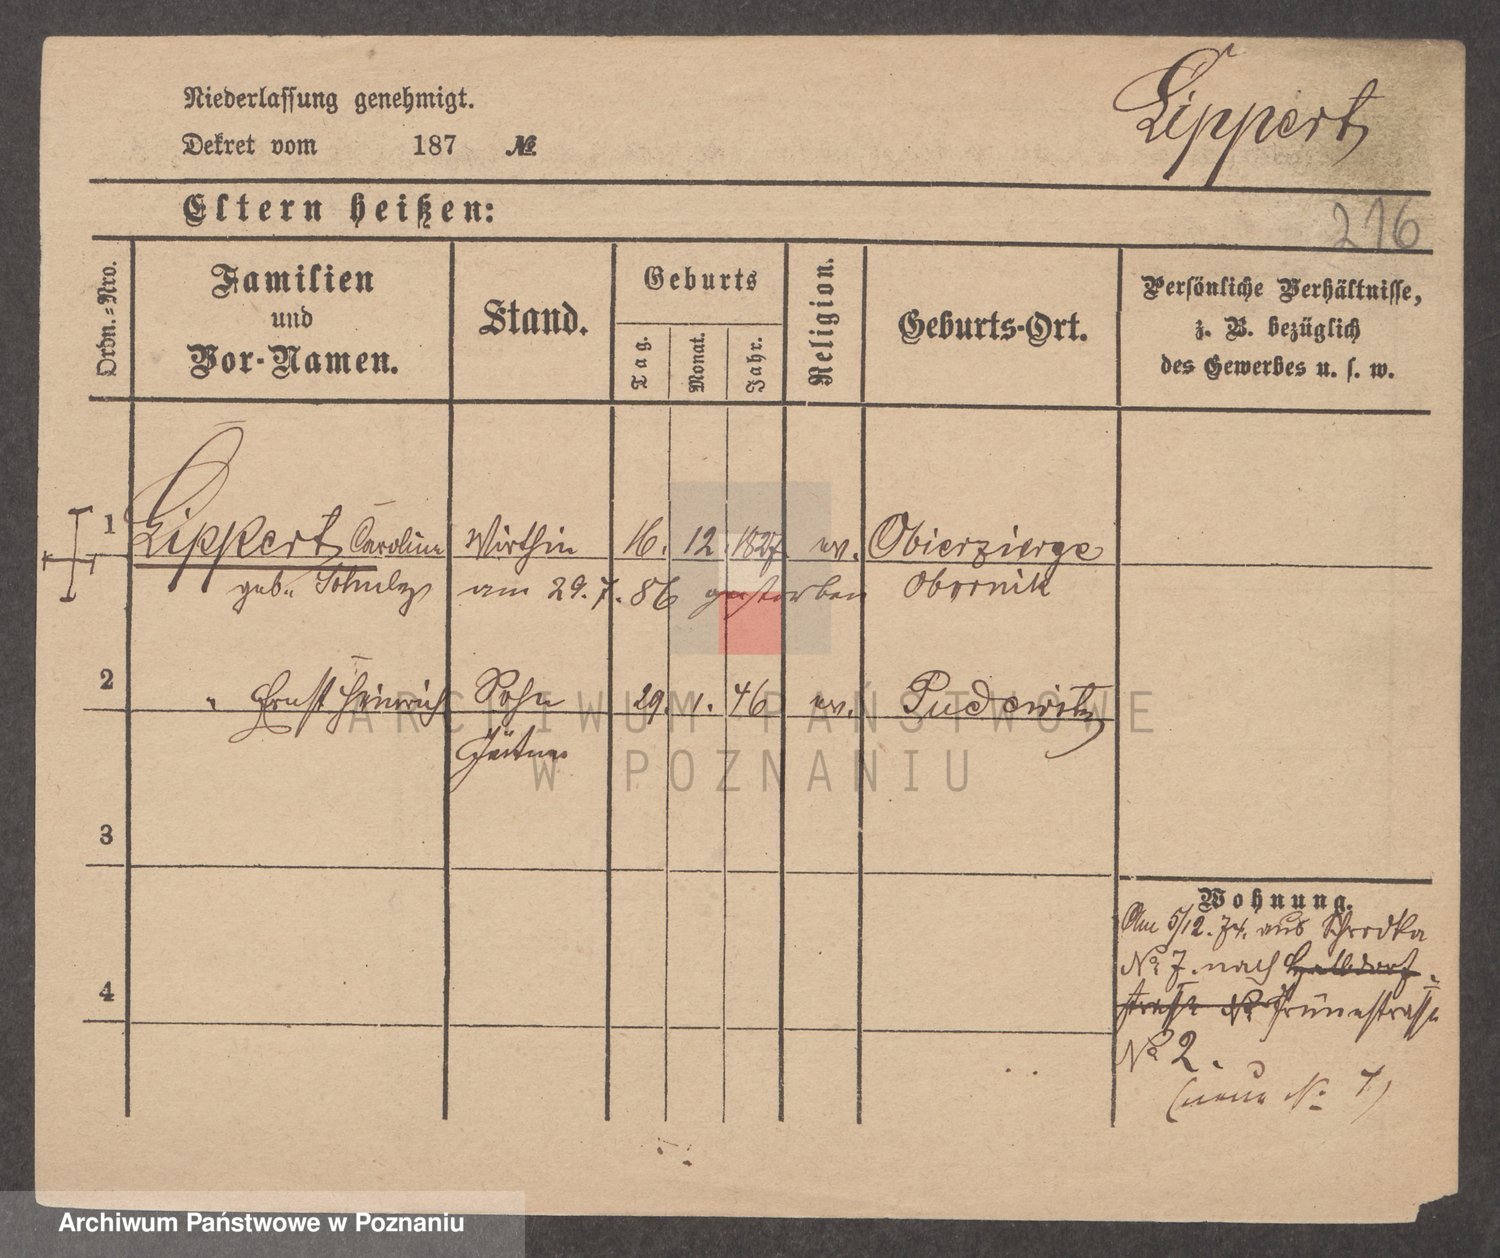 Niederlassung genehmigt.
Dekret vom 187 №
Lippert
Eltern heißen:
216
Ordn.-Nro.
Familien und Vor-Namen.
Stand.
Geburts
Tag.
Monat.
Jahr.
Religion.
Geburts-Ort.
Persönliche Verhältnisse,
z. B. bezüglich
des Gewerbes u. s. w.
1 Lippert Caroline Wirthin 16. 12. 1827 ev. Obierzierge
geb. Schulz am 29.7.86 gestorben Obornik
2 " Ernst Heinrich Sohn 29. 1. 46 ev. Pudewitz
Gärtner
3
4
Wohnung.
Am 5/12. 74. aus Schrodka
No 7. nach Halbdorf-
strasse No Grünestrasse
No 2.
(neue No 7)
ARCHIWUM PAŃSTWOWE
W POZNANIU
Archiwum Państwowe w Poznaniu